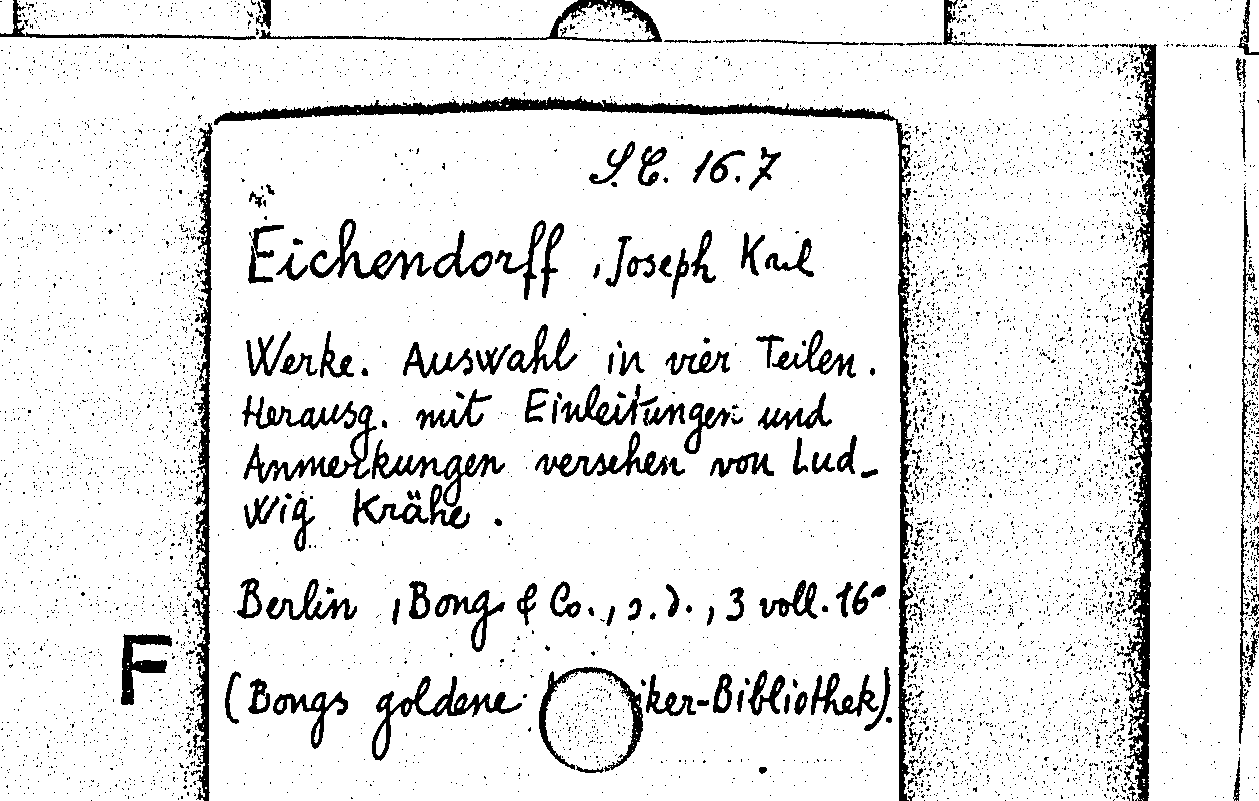 S.C. 16.7
Eichendorff, Joseph Karl
Werke. Auswahl in vier Teilen.
Herausg. mit Einleitungen und
Anmerkungen versehen von Lud-
wig Krähe.
Berlin, Bong & Co., s.d., 3 voll. 16°
F
(Bongs goldene iker-Bibliothek).